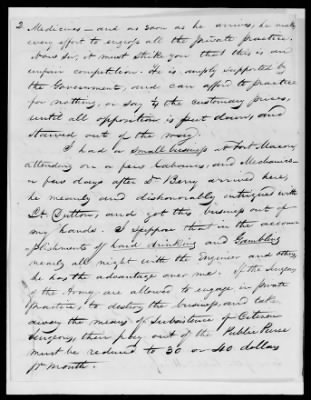 2. Medicines – and as soon as he arrives, he makes
every effort to engross all the private practice.
Now Sir, it must strike you that this is an
unfair competition. He is amply supported by
the Government, and can afford to practice
for nothing, or say ½ the customary prices,
until all opposition is put down, and
starved out of the way.
I had a small business at Fort Macon,
attending on a few Labourers, and Mechanics –
a few days after Dr Berry arrived here,
he meanly and dishonorably intrigues with
Lt. Dutton, and got this business out of
my hands. I suppose that in the accom
plishments of hard drinking and Gambling
nearly all night with the Engineer and others,
he has the advantage over me. If the Surgeons
of the Army, are allowed to engage in private
practice, to destroy the business, and take
away the means of Subsistence of Citizen
Surgeons, their pay out of the Public Purse
must be reduced to 30 or 40 dollars
pr month.